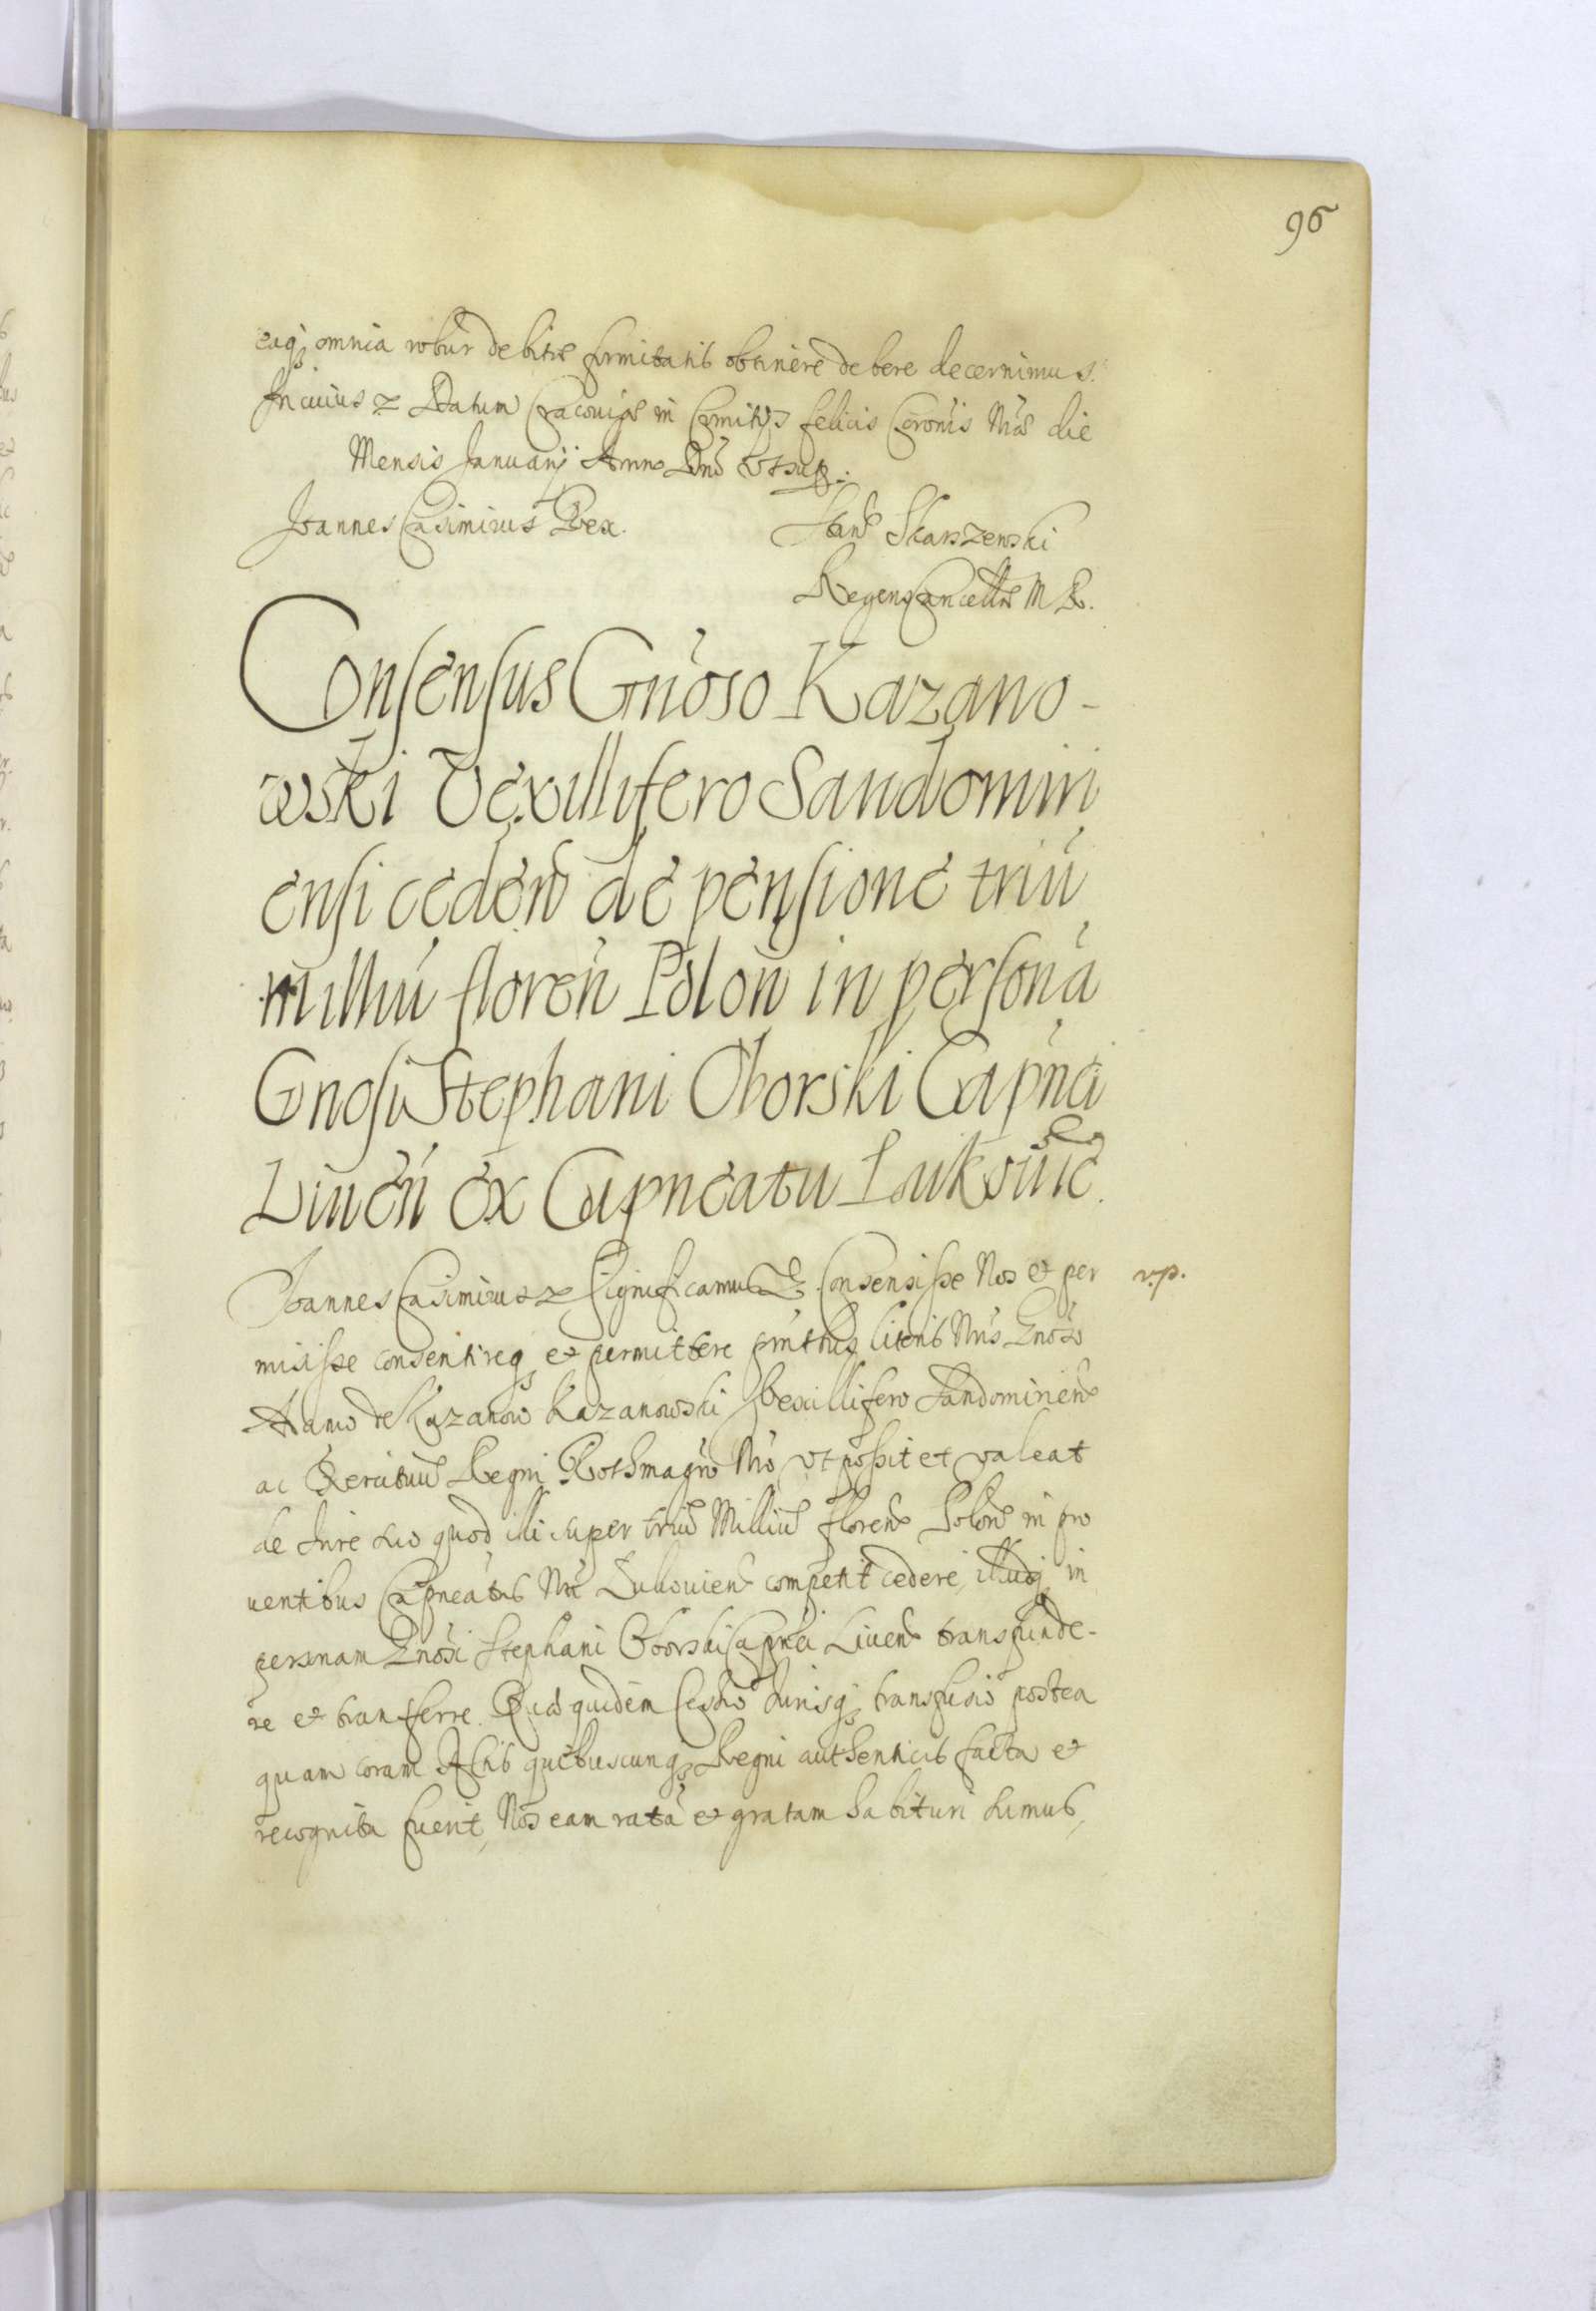 96
eaq; omnia robur debitæ firmitatis obtinere debere decernimus.
In cuius &c Datum Cracoviæ in Comitijs felicis Coronis Nræ die
Mensis Januarij Anno Dni Utsup.
Joannes Casimirus Rex. Stan Skarszewski
Regens Cancellræ M R.
Consensus Gnoso Kazano-
wski Vexillifero Sandomiri
ensi ceden de pensione triu
milliu floren Polon in persona
Gnosi Stephani Oborski Capnei
Liven ex Capneatu Luk
Joannes Casimirus &c Significamus &c Consensisse Nos et per
v.p.
misisse consentireq; et permittere pnthbs literis Nris Gnoso
Adamo de Kazanow Kazanowski Vexillifero Sandomirien
ac Exercituu Regni Rothmagro Nro ut possit et valeat
de Jure suo quod illi super triu Milliu floren Polon in pro
uentibus Capneatus Nri Lukouien competit cedere, illudq; in
personam Gnosi Stephani Oborski Capnei Liuen transfunde-
re et transferre. Quæ quidem Cessio Jurisq; transfusio postea
quam coram Actis quibuscunq; Regni authenticis facta et
recognita fuerit, Nos eam rata et gratam habituri sumus,